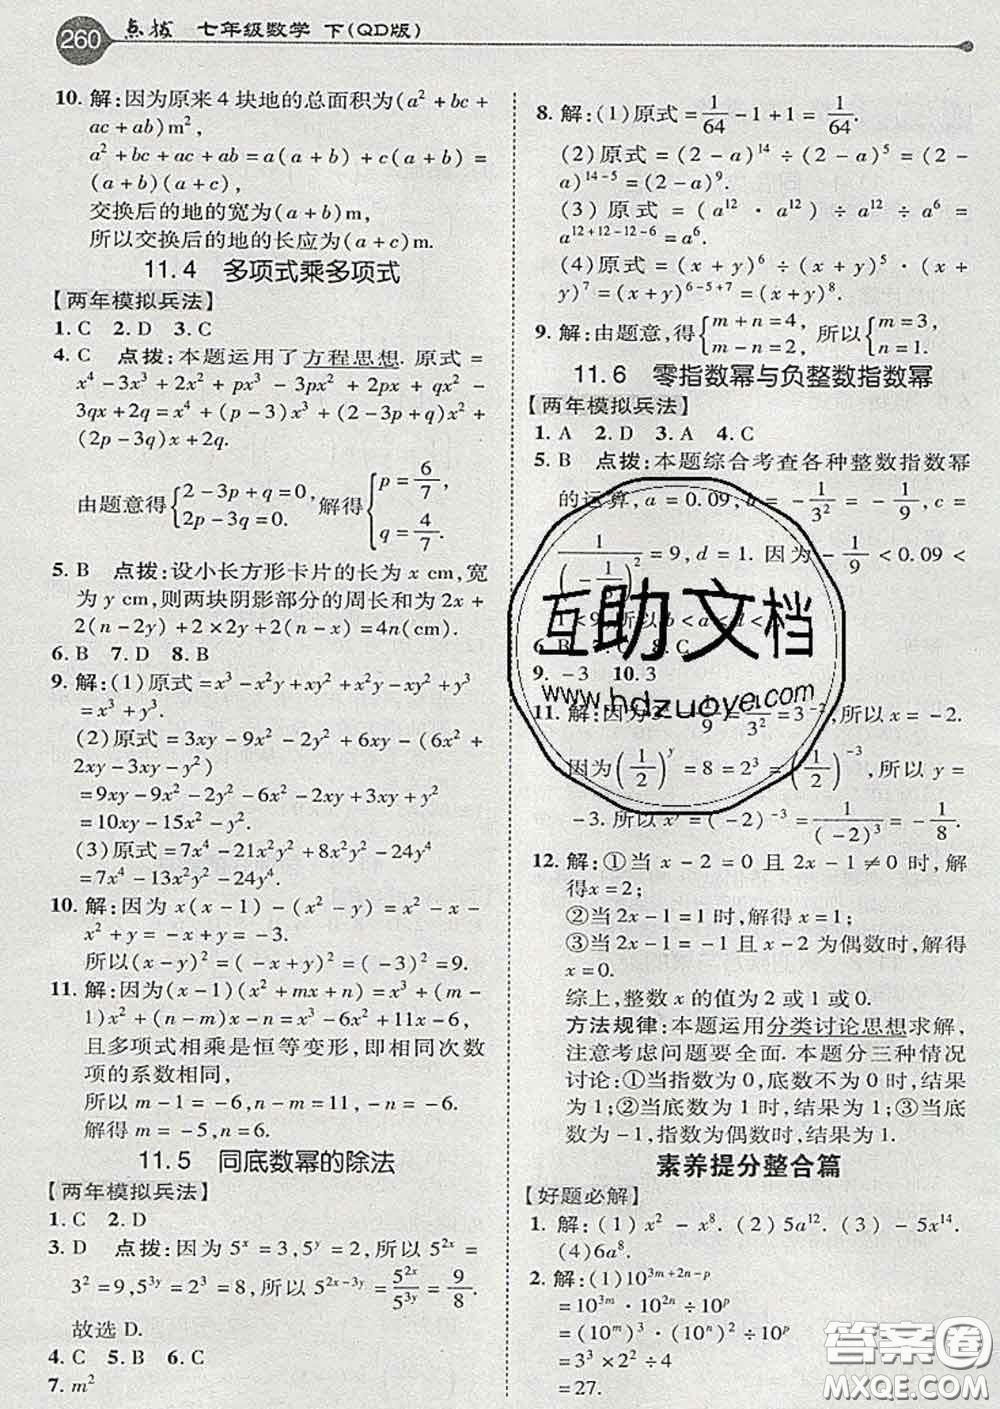 260 点拨 七年级数学 下(QD版)
10. 解:因为原来4块地的总面积为(a² + bc +
ac + ab)m²,
a² + bc + ac + ab = a(a + b) + c(a + b) =
(a + b)(a + c),
交换后的地的宽为(a + b)m,
所以交换后的地的长应为(a + c)m.
11.4 多项式乘多项式
【两年模拟兵法】
1. C 2. D 3. C
4. C 点拨:本题运用了方程思想. 原式 =
x⁴ - 3x³ + 2x² + px³ - 3px² + 2px + qx² -
3qx + 2q = x⁴ + (p - 3)x³ + (2 - 3p + q)x² +
(2p - 3q)x + 2q.
由题意得{2 - 3p + q = 0, 2p - 3q = 0. 解得{p = 6/7, q = 4/7.
5. B 点拨:设小长方形卡片的长为 x cm,宽
为 y cm,则两块阴影部分的周长和为 2x +
2(n - 2y) + 2×2y + 2(n - x) = 4n(cm).
6. B 7. D 8. B
9. 解:(1)原式 = x³ - x²y + xy² + x²y - xy² + y³
= x³ + y³.
(2)原式 = 3xy - 9x² - 2y² + 6xy - (6x² +
2xy - 3xy - y²)
= 9xy - 9x² - 2y² - 6x² - 2xy + 3xy + y²
= 10xy - 15x² - y².
(3)原式 = 7x⁴ - 21x²y² + 8x²y² - 24y⁴
= 7x⁴ - 13x²y² - 24y⁴.
10. 解:因为 x(x - 1) - (x² - y) = x² - x -
x² + y = -x + y = -3.
所以(x - y)² = (-x + y)² = (-3)² = 9.
11. 解:因为(x - 1)(x² + mx + n) = x³ + (m -
1)x² + (n - m)x - n = x³ - 6x² + 11x - 6,
且多项式相乘是恒等变形,即相同次数
项的系数相同,
所以 m - 1 = -6, n - m = 11, -n = -6.
解得 m = -5, n = 6.
11.5 同底数幂的除法
【两年模拟兵法】
1. C 2. D
3. D 点拨:因为 5ˣ = 3, 5ʸ = 2, 所以 5²ˣ =
3² = 9, 5³ʸ = 2³ = 8, 所以 5²ˣ⁻³ʸ = 5²ˣ/5³ʸ = 9/8.
故选 D.
4. C 5. B 6. C
7. m²
8. 解:(1)原式 = 1/64 - 1 + 1 = 1/64.
(2)原式 = (2 - a)¹⁴ ÷ (2 - a)⁵ = (2 -
a)¹⁴⁻⁵ = (2 - a)⁹.
(3)原式 = (a¹² · a¹²) ÷ a¹² ÷ a⁶ =
a¹²⁺¹²⁻¹²⁻⁶ = a⁶.
(4)原式 = (x + y)⁶ ÷ (x + y)⁵ · (x +
y)⁷ = (x + y)⁶⁻⁵⁺⁷ = (x + y)⁸.
9. 解:由题意,得{m + n = 4, m - n = 2. 所以{m = 3, n = 1.
11.6 零指数幂与负整数指数幂
【两年模拟兵法】
1. A 2. D 3. A 4. C
5. B 点拨:本题综合考查各种整数指数幂
的运算, a = 0.09, b = -1/3² = -1/9, c =
1/(-1/3)² = 9, d = 1. 因为 -1/9 < 0.09 <
1 < 9, 所以 b < a < d <
6. B 7. C 8. C
9. -3 10. 3
11. 解:因为 1/9 = 1/3² = 3⁻², 所以 x = -2.
因为(1/2)ʸ = 8 = 2³ = (1/2)⁻³, 所以 y =
-3. 所以 xʸ = (-2)⁻³ = 1/(-2)³ = -1/8.
12. 解:①当 x - 2 = 0 且 2x - 1 ≠ 0 时,解
得 x = 2;
②当 2x - 1 = 1 时,解得 x = 1;
③当 2x - 1 = -1 且 x - 2 为偶数时,解得
x = 0.
综上,整数 x 的值为 2 或 1 或 0.
方法规律:本题运用分类讨论思想求解,
注意考虑问题要全面. 本题分三种情况
讨论:①当指数为 0,底数不为 0 时,结果
为 1;②当底数为 1 时,结果为 1;③当底
数为 -1,指数为偶数时,结果为 1.
素养提分整合篇
【好题必解】
1. 解:(1)x² - x⁸. (2)5a¹². (3) -5x¹⁴.
(4)6a⁸.
2. 解:(1)10³ᵐ⁺²ⁿ⁻ᵖ
= 10³ᵐ · 10²ⁿ ÷ 10ᵖ
= (10ᵐ)³ · (10ⁿ)² ÷ 10ᵖ
= 3³ × 2² ÷ 4
= 27.
互助文档
www.hdzuoye.com
答案圈
MXQE.COM